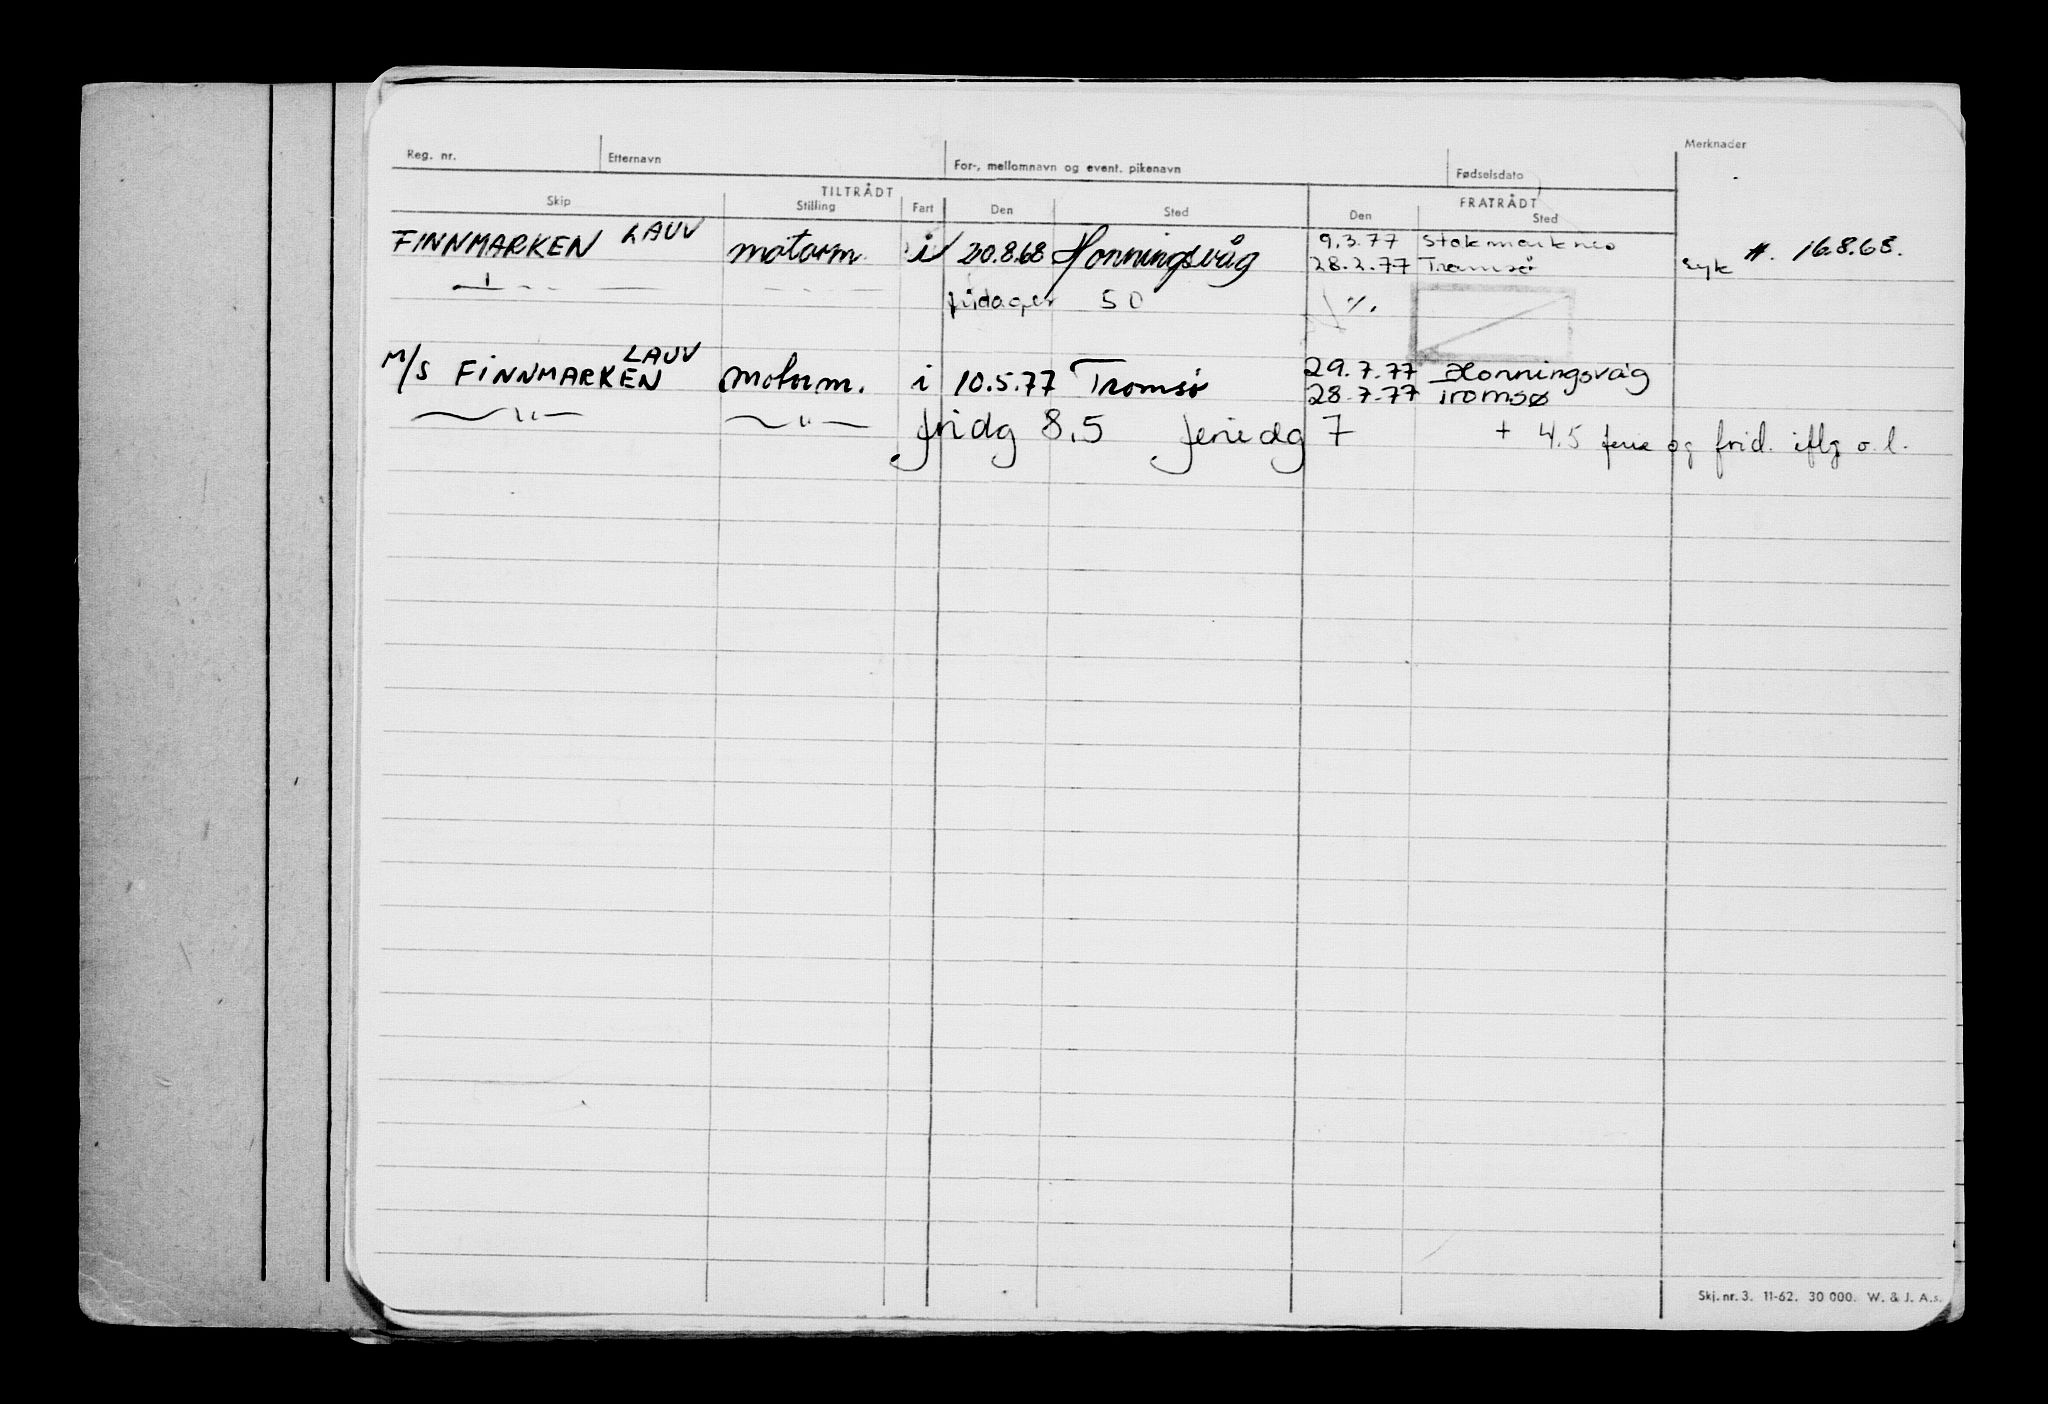 Merknader
Reg. nr. Etternavn For-, mellomnavn og event. pikenavn Fødselsdato
TILTRÅDT FRATRÅDT
Skip Stilling Fart Den Sted Den Sted
FINNMARKEN LAUV motorm. i 20.8.68 Honningsvåg 9.3.77 Stokmarknes #. 16.8.68.
28.2.77 Tromsø syk
— " — — — — fridager 50 ./.
M/S FINNMARKEN LAUV motorm. i 10.5.77 Tromsø 29.7.77 Honningsvåg
— " — — " — 28.7.77 Tromsø
fridg 8,5 feriedg 7 + 4.5 ferie og frid. iflg o.l.
Skj. nr. 3. 11-62. 30 000. W. & J. A.s.